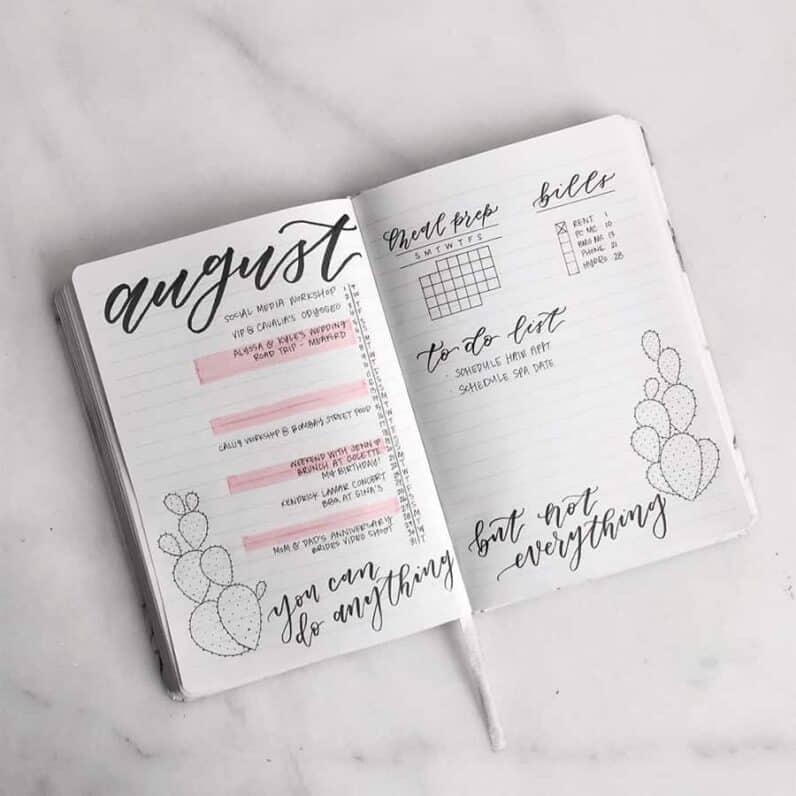 august
SOCIAL MEDIA WORKSHOP
VIP @ CAVALIA'S ODYSSEO
ALYSSA & KYLE'S WEDDING
ROAD TRIP - MEAFORD
CALLIG WORKSHOP @ BOMBAY STREET FOOD
WEEKEND WITH JENN
BRUNCH AT COLETTE
MY BIRTHDAY!
KENDRICK LAMAR CONCERT
BBQ AT GINA'S
MOM & DAD'S ANNIVERSARY
BRIDES VIDEO SHOOT
you can
do anything
meal prep
S M T W T F S
bills
RENT 1
PC MC 10
BMO MC 13
PHONE 21
HYDRO 28
to do list
· SCHEDULE HAIR APPT
· SCHEDULE SPA DATE
but not
everything